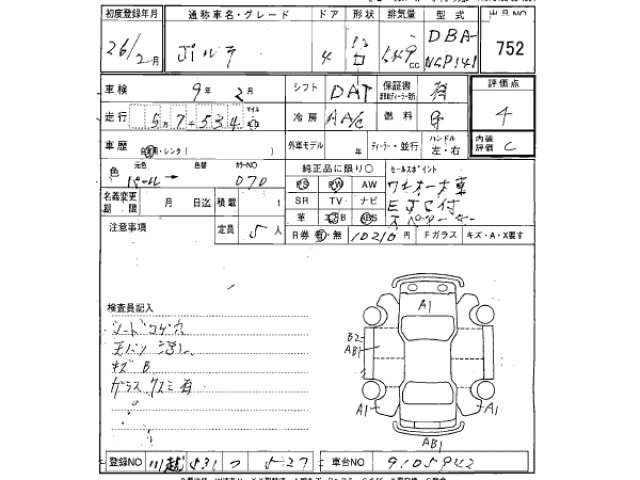 初度登録年月 通称車名・グレード ドア 形状 排気量 型式 出品NO
26/2月 ポルテ 4 1549cc DBA-NSP141 752
車検 9年 2月 シフト DAT 保証書 有 評価点
走行 5万7534 マイル 冷房 AA/C 燃料 G 4
車歴 自家用・レンタ( ) 外車モデル 年 ディーラー・並行 ハンドル 左・右 内装評価 C
色 元色 パール→ 色替 カラーNO 070 純正品に限り○ セールスポイント
PS PW AW ワンオーナー車
名義変更期限 月 日迄 積載 t SR TV ナビ ETC付
革 エアB ABS スペアキー
注意事項 定員 5人 R券 有・無 10210円 Fガラス キズ・A・X要す
検査員記入
シートコゲ穴
キズB
ガラスクスミ有
A1
B2
AB1
A1
A1
AB1
登録NO 川越 531 つ 527 車台NO 9105942